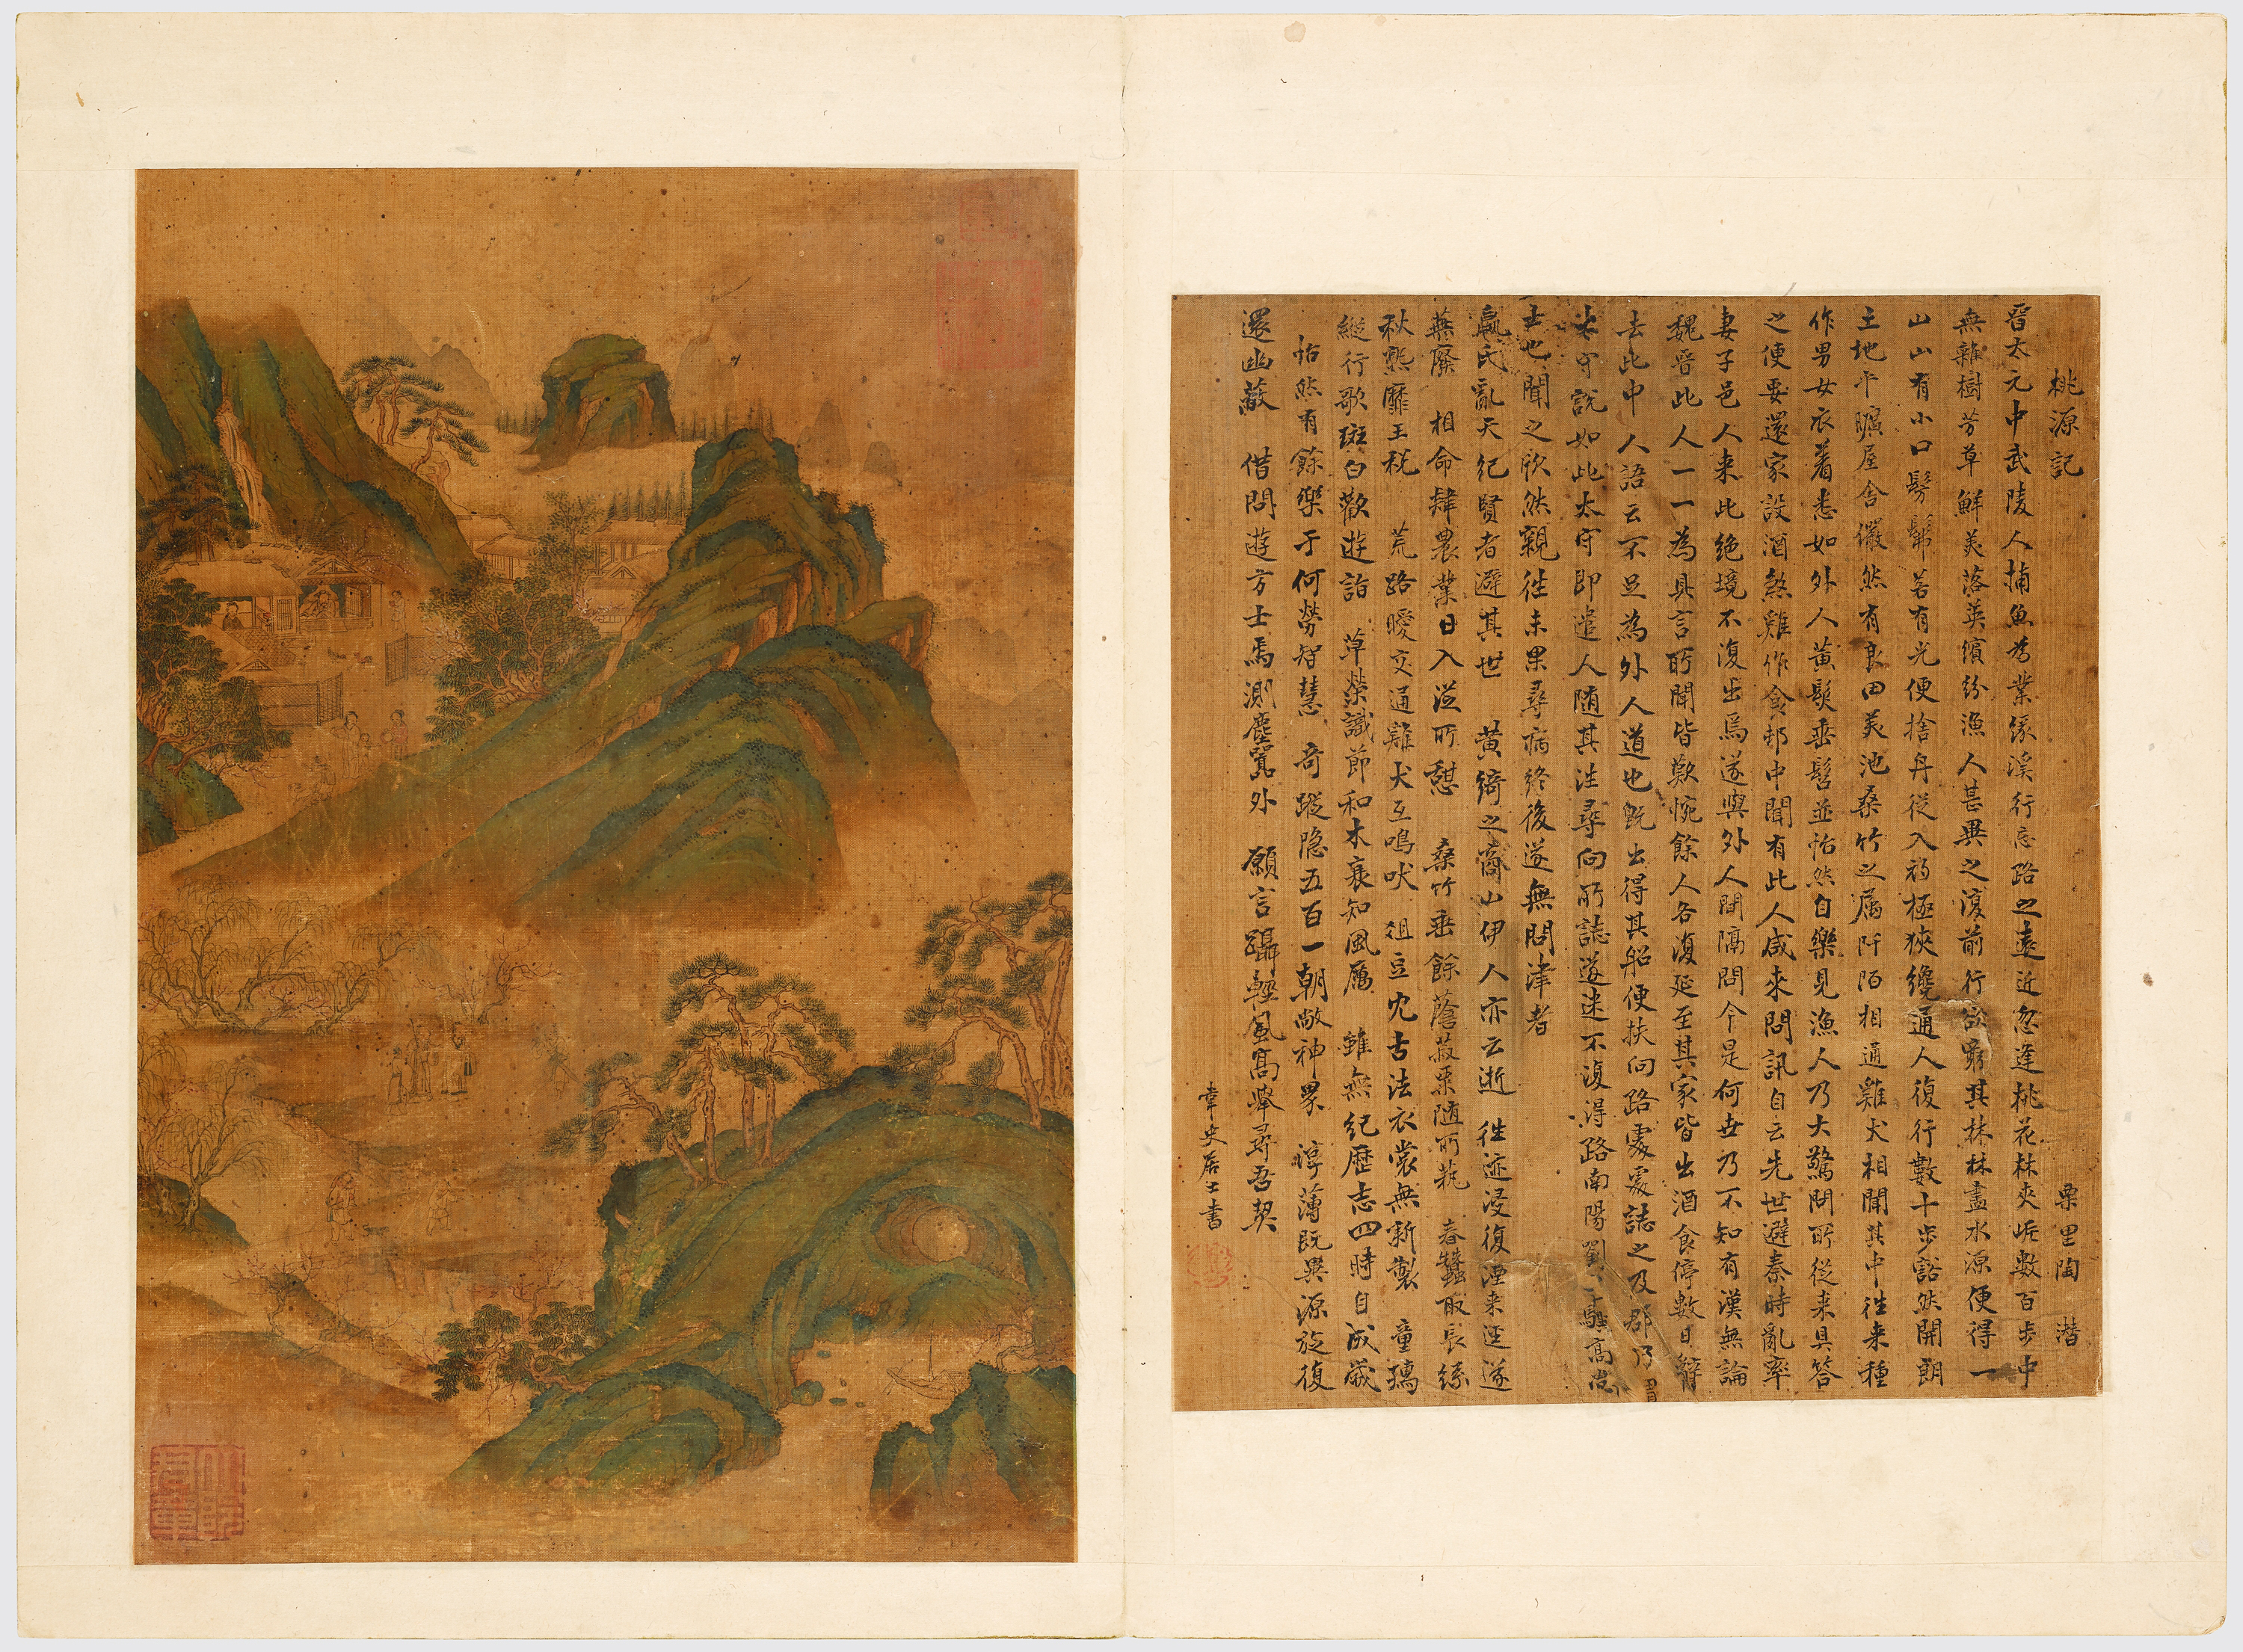 桃源記 栗里陶 潛
晉太元中武陵人捕魚為業缘溪行忘路之遠近忽逢桃花林夾岸數百步中
無雜樹芳草鮮美落英繽紛漁人甚異之復前行欲窮其林林盡水源便得一
山山有小口髣髴若有光便捨舟從入初極狹纔通人復行數十步豁然開朗
土地平曠屋舍儼然有良田美池桑竹之属阡陌相通雞犬相聞其中往来種
作男女衣着悉如外人黄髮垂髫並怡然自樂見漁人乃大驚問所從来具答
之便要還家設酒煞雞作食邨中聞有此人咸來問訊自云先世避秦時亂率
妻子邑人来此絶境不復出焉遂與外人間隔問今是何世乃不知有漢無論
魏晉此人一一為具言所聞皆歎惋餘人各復延至其家皆出酒食停數日辭
去此中人語云不足為外人道也既出得其船便扶向路處處誌之及郡乃
太守説如此太守即遣人随其往尋向所誌遂迷不復得路南陽劉子驥高尚
士也聞之欣然親往未果尋病終後遂無問津者
嬴氏亂天紀賢者避其世 黄綺之商山伊人亦云逝 往迹浸復湮来逕遂
蕪廢 相命肄農業日入從所憩 桑竹垂餘蔭菽粟随所蓺 春蠶取長絲
秋熟靡王税 荒路曖交通雞犬互鳴吠 俎豆尤古法衣裳無新製 童孺
縱行歌斑白歡遊詣 草榮識節和木衰知風厲 雖無紀歷志四時自成歲
怡然有餘樂于何勞智慧 奇蹤隐五百一朝敞神界 淳薄既異源旋復
還幽蔽 借問遊方士焉測塵囂外 願言躡輕風高舉尋吾契
史居士書